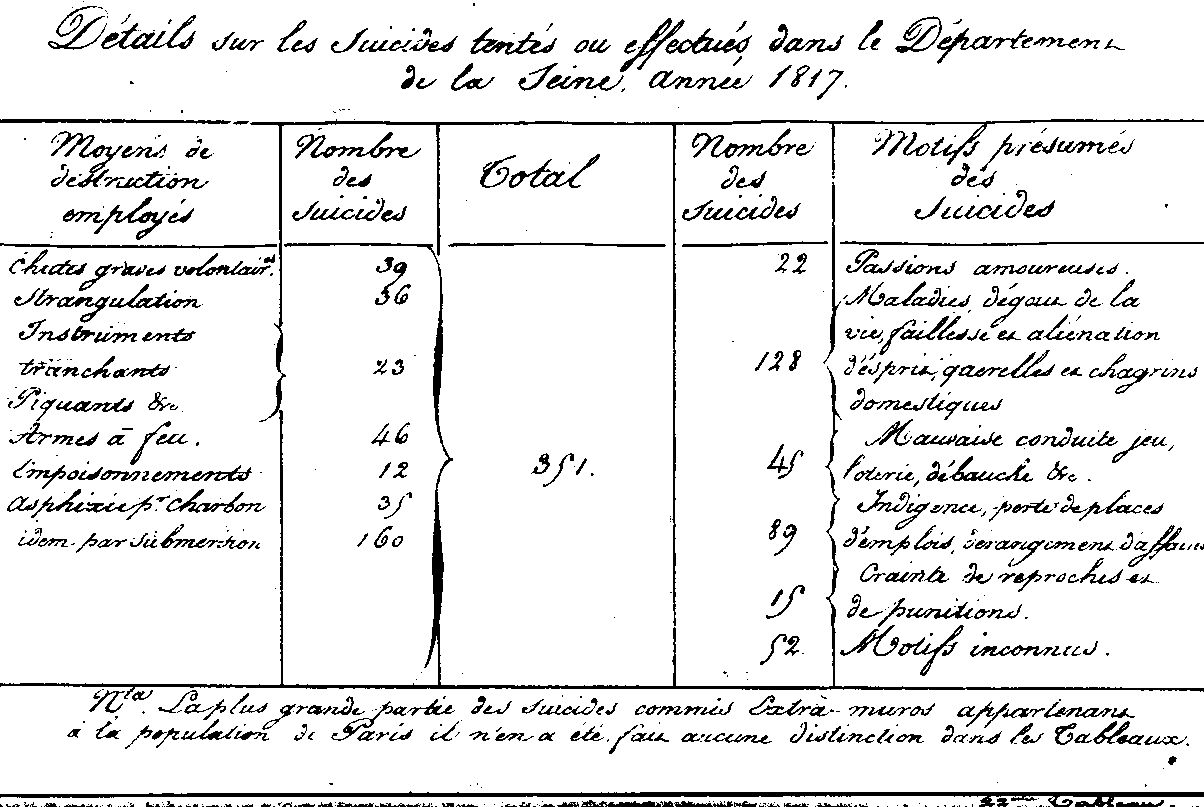 Détails sur les Suicides tentés ou effectués, dans le Département
de la Seine, année 1817.
Moyens de
destruction
employés
Nombre
des
Suicides
Total
Nombre
des
Suicides
Motifs présumés
des
Suicides
Chutes graves volontaires.
39
Strangulation
36
Instruments
tranchants
23
Piquants &c
Armes à feu.
46
Empoisonnements
12
Asphixie pr. Charbon
35
idem par submersion
160
351.
22
Passions amoureuses.
Maladies, dégout de la
vie, faillesse et aliénation
128
d'esprit, querelles et chagrins
domestiques
Mauvaise conduite jeu,
45
loterie, débauche &c.
Indigence, perte de places
89
d'emplois, dérangement d'affaires
Crainte de reproches et
15
de punitions.
52
Motifs inconnus.
Nta. La plus grande partie des Suicides commis Extrà-muros appartenant
à la population de Paris il n'en a été fait aucune distinction dans les Tableaux.